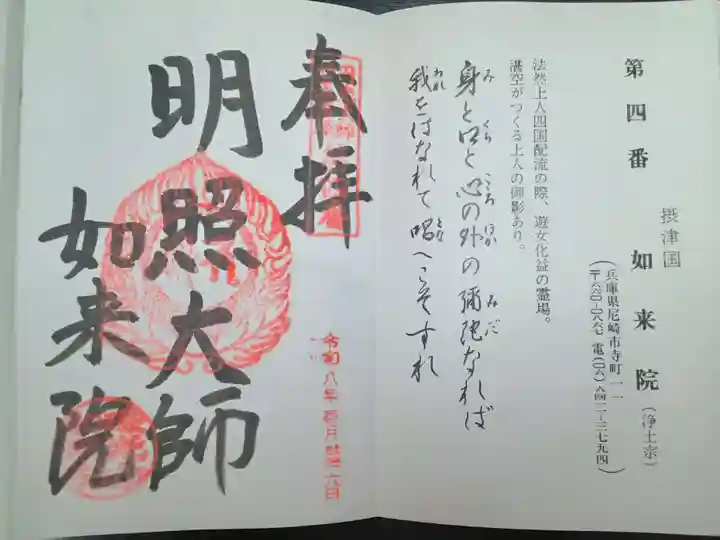 第四番
摂津国
如来院(浄土宗)
(兵庫県尼崎市寺町一一
〒六六〇-〇八六七 電(〇六)六四一一-三七九四)
法然上人四国配流の際、遊女化益の霊場。
湛空がつくる上人の御影あり。
身と口と心の外の彌陀なれば
我をはなれて唱へこそすれ
奉拝
明照大師
如来院